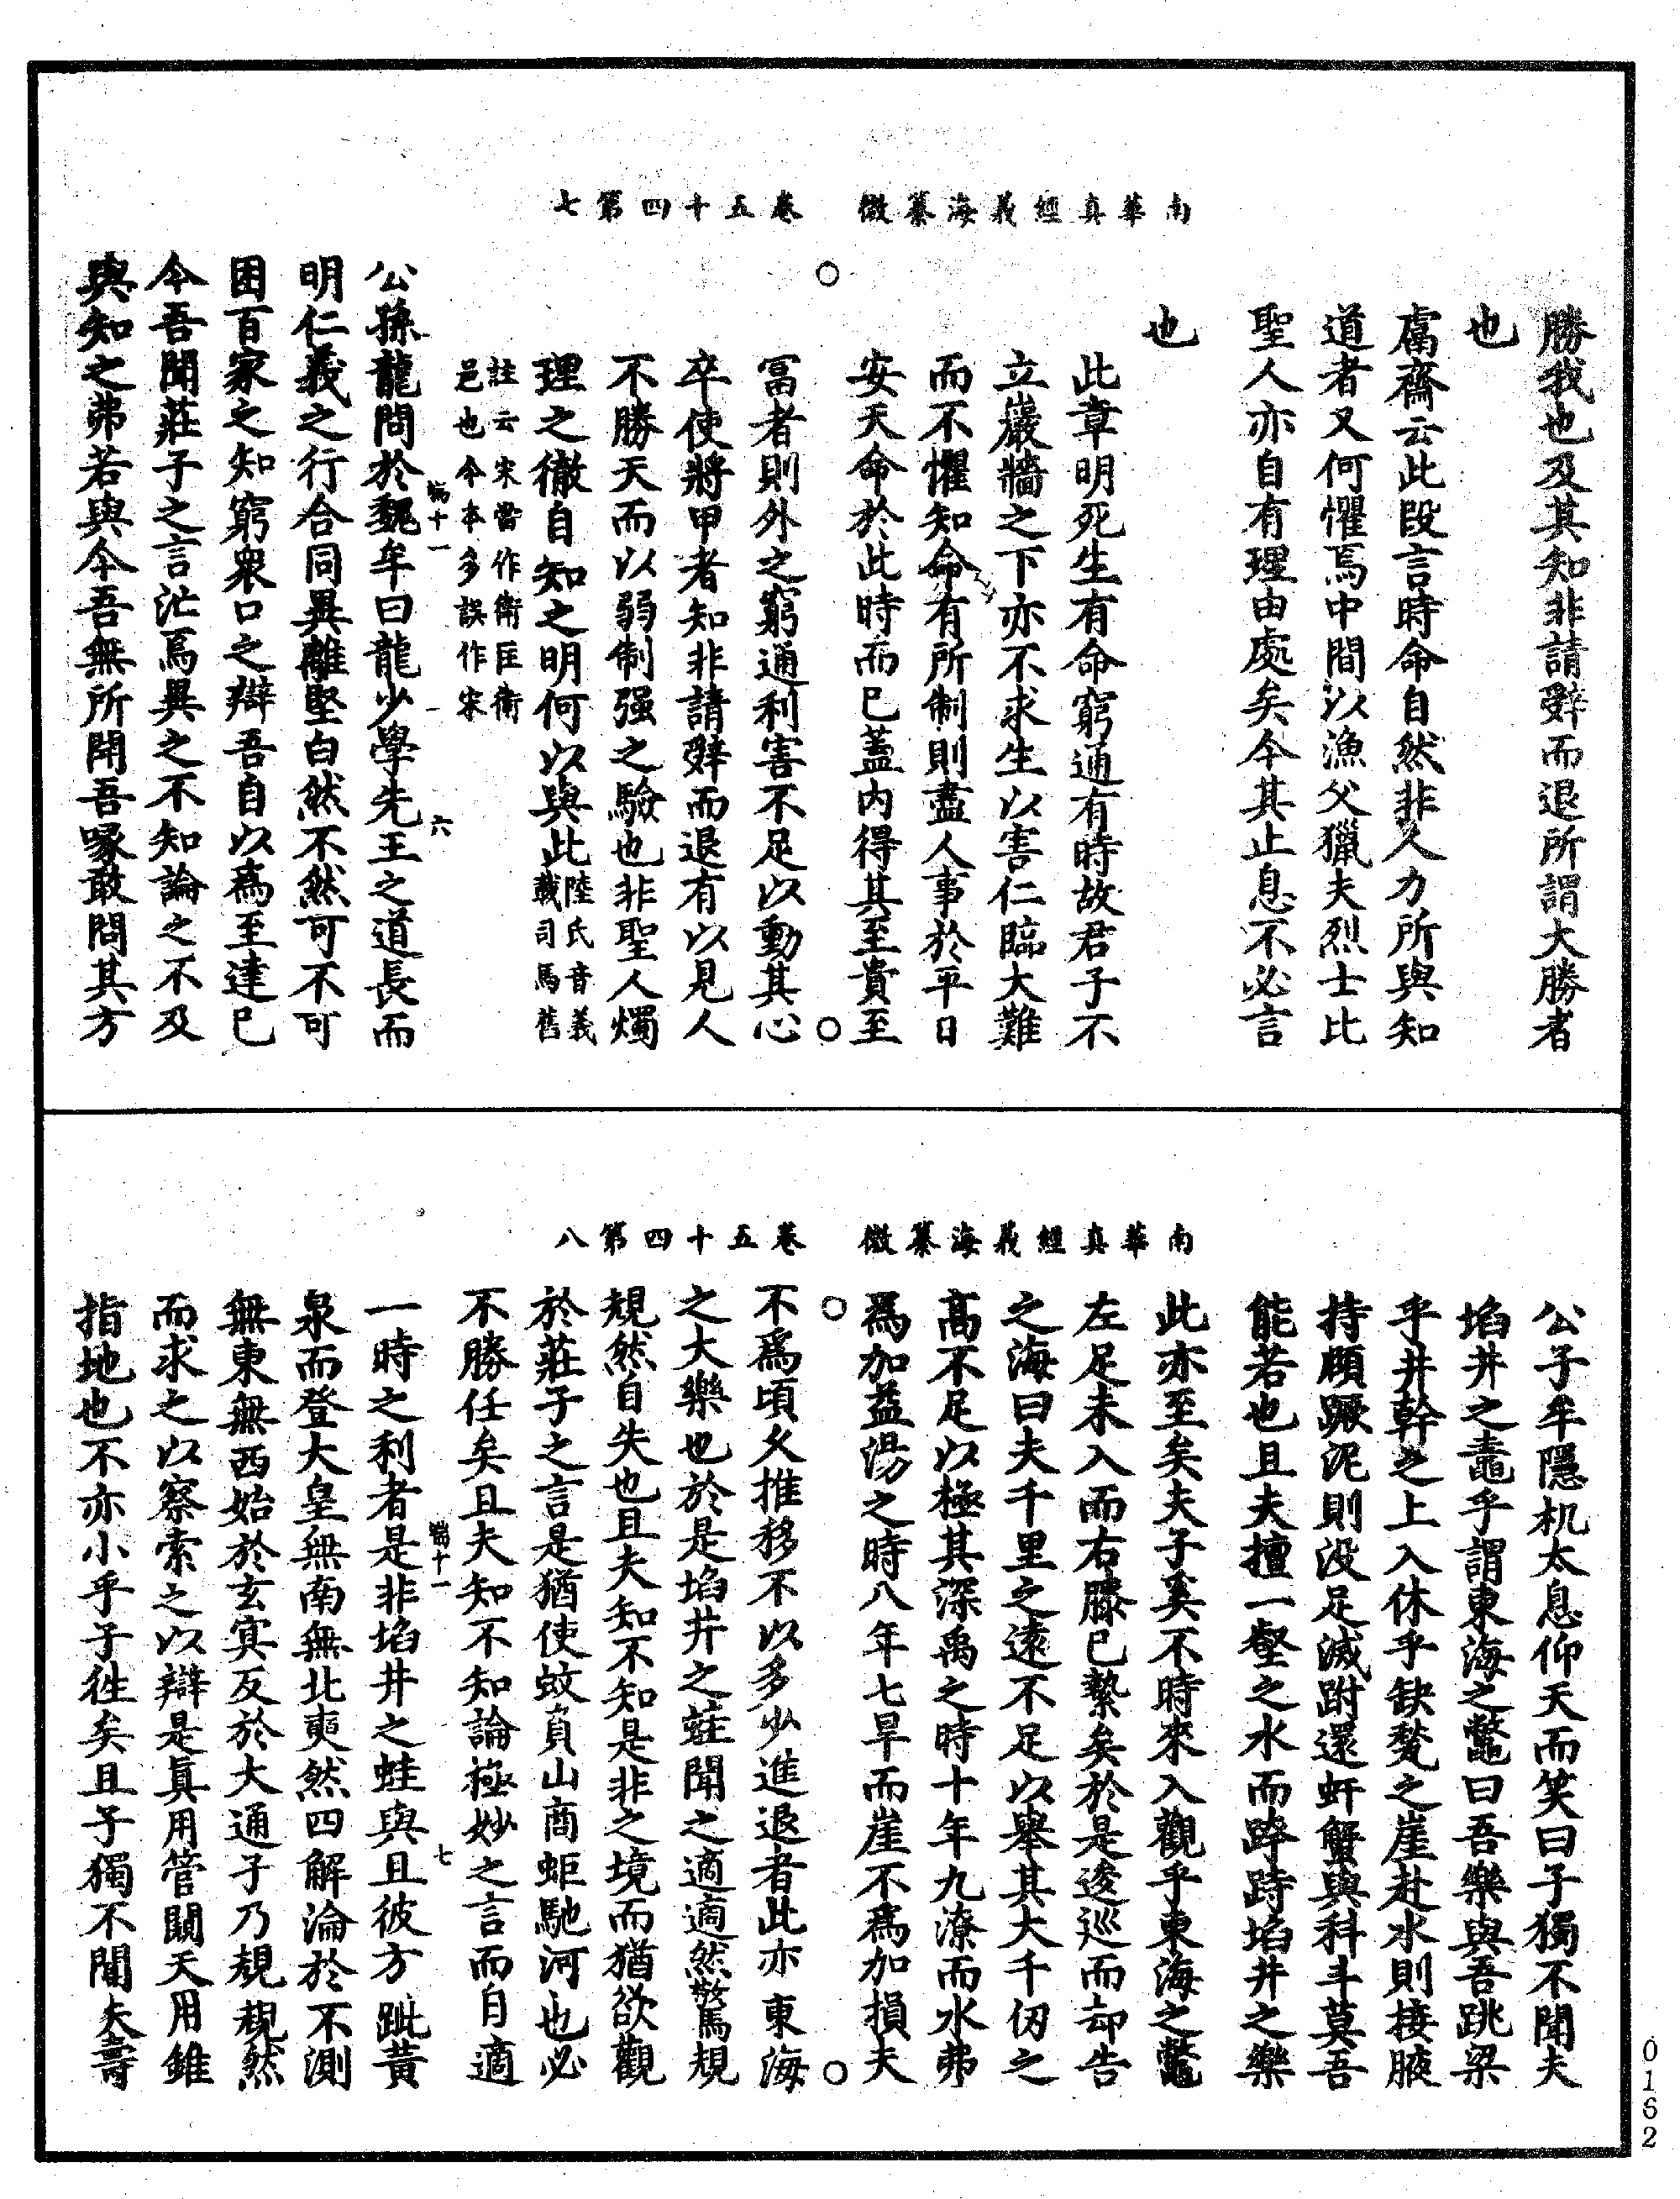 南華真經義海纂微　卷五十四第七
勝我也及其知非請辭而退所謂大勝者
也
鬳齋云此段言時命自然非人力所與知
道者又何懼焉中間以漁父獵夫烈士比
聖人亦自有理由處矣今其止息不必言
也
此章明死生有命窮通有時故君子不
立巖牆之下亦不求生以害仁臨大難
而不懼知命有所制則盡人事於平日
安天命於此時而已蓋內得其至貴至
冨者則外之窮通利害不足以動其心
卒使將甲者知非請辭而退有以見人
不勝天而以弱制强之驗也非聖人燭
理之徹自知之明何以與此陸氏音義載司馬舊
註云宋當作衛匡衛邑也今本多誤作宋
端十一　六
公孫龍問於魏牟曰龍少學先王之道長而
明仁義之行合同異離堅白然不然可不可
困百家之知窮衆口之辯吾自以爲至達已
今吾聞莊子之言汒焉異之不知論之不及
與知之弗若與今吾無所開吾喙敢問其方
南華真經義海纂微　卷五十四第八
公子牟隱机太息仰天而笑曰子獨不聞夫
埳井之鼃乎謂東海之鼈曰吾樂與吾跳梁
乎井幹之上入休乎缺甃之崖赴水則接腋
持頤蹶泥則没足滅跗還虷蟹與科斗莫吾
能若也且夫擅一壑之水而跨跱埳井之樂
此亦至矣夫子奚不時來入觀乎東海之鼈
左足未入而右膝已縶矣於是逡巡而却告
之海曰夫千里之遠不足以舉其大千仞之
高不足以極其深禹之時十年九潦而水弗
爲加益湯之時八年七旱而崖不爲加損夫
不爲頃久推移不以多少進退者此亦東海
之大樂也於是埳井之蛙聞之適適然驚規
規然自失也且夫知不知是非之境而猶欲觀
於莊子之言是猶使蚊負山商蚷馳河也必
不勝任矣且夫知不知論極妙之言而自適
端十一　七
一時之利者是非埳井之蛙與且彼方跐黃
泉而登大皇無南無北奭然四解淪於不測
無東無西始於玄冥反於大通子乃規規然
而求之以察索之以辯是真用管闚天用錐
指地也不亦小乎子徃矣且子獨不聞夫壽
0162